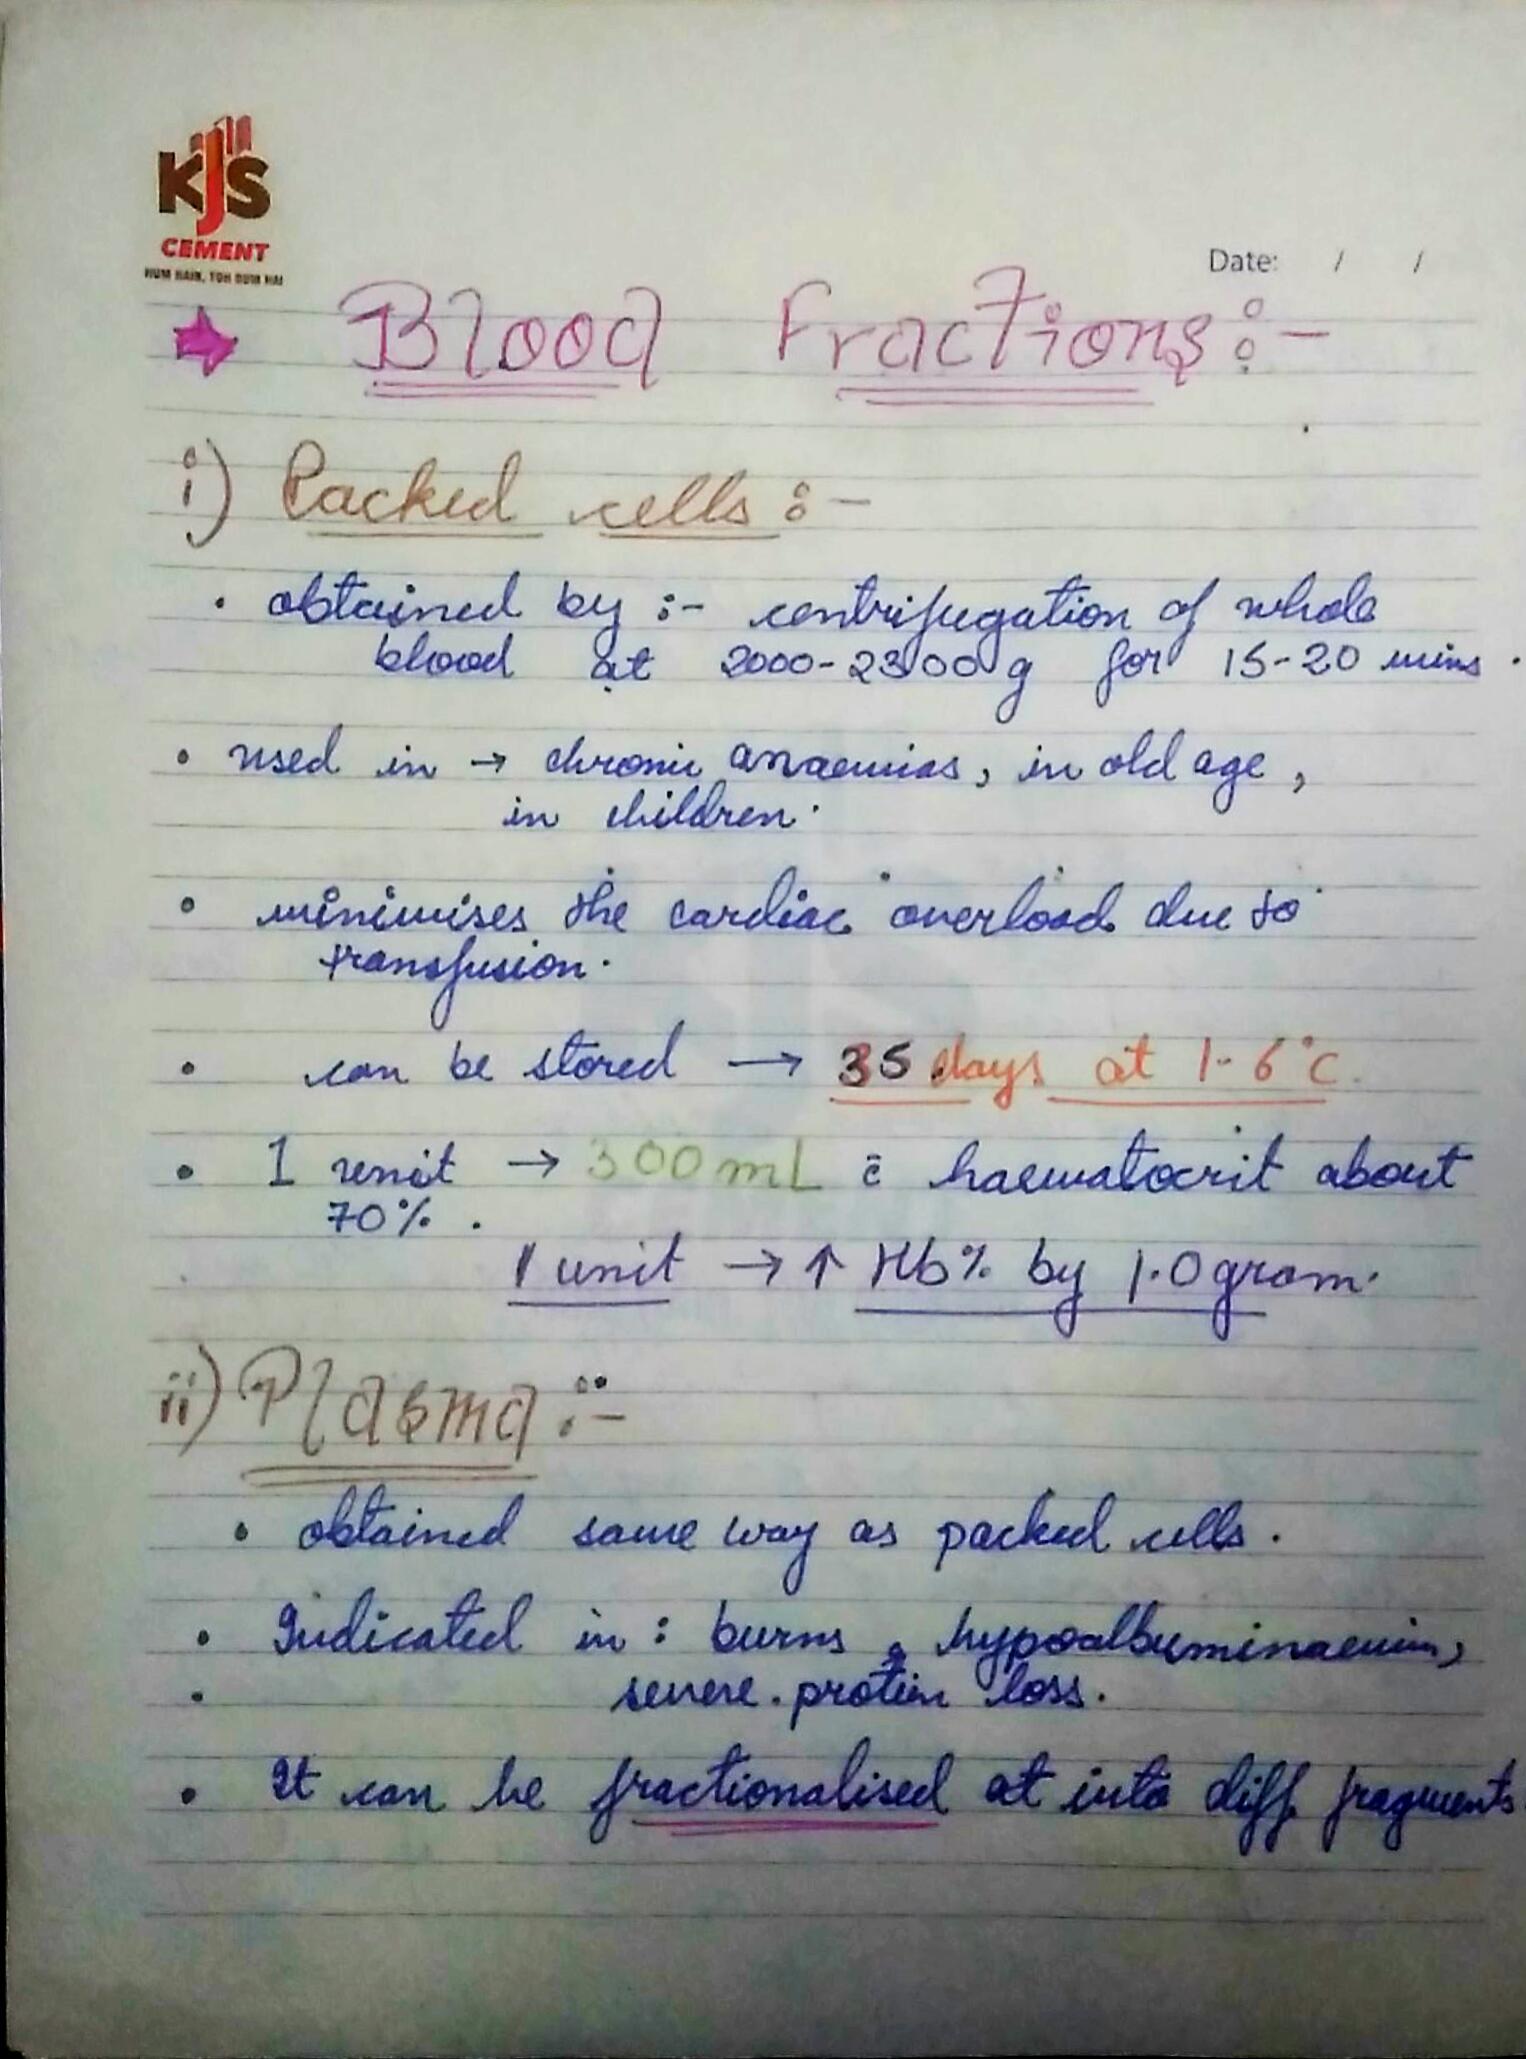 KJS
CEMENT
HUM HAIN, TOH DUM HAI
Date: / /
Blood Fractions:-
i) Packed cells :-
• obtained by :- centrifugation of whole
blood at 2000-2300g for 15-20 mins.
• used in → chronic anaemias, in old age,
in children.
• minimises the cardiac overload due to
transfusion.
• can be stored → 35 days at 1-6°C.
• 1 unit → 300mL c̄ haematocrit about
70%.
1 unit → ↑ Hb% by 1.0gram.
ii) Plasma :-
• obtained same way as packed cells.
• Indicated in : burns, hypoalbuminaemia,
• severe protein loss.
• It can be fractionalised at into diff fragments.